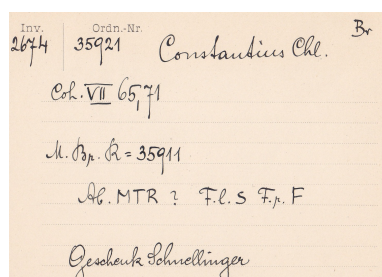 Inv. Ordn.-Nr. Br
2674 35921 Constantius Chl.
Coh. VII 65,71
M. Br. R = 35911
Ab. MTR ? F.l. S F.r. F
Geschenk Schnellinger